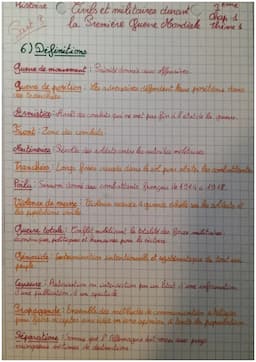 Histoire
Civils et militaires durant
3ème
la Première Guerre Mondiale
Chap 1
Thème 1
Partie
6) Définitions
Guerre de mouvement : Priorité donnée aux offensives.
Guerre de position : Les adversaires défendent leurs positions dans
des tranchées.
Armistice : Arrêt des combats qui ne met pas fin à l'état de la guerre.
Front : Zone des combats.
Mutinerie : Révolte des soldats contre les autorités militaires.
Tranchées : Longs fossés creusés dans le sol pour abriter les combattants.
Poilu : Surnom donné aux combattants français de 1914 à 1918.
Violence de masse : Violence massive à grande échelle sur les soldats et
les populations civiles.
Guerre totale : Conflit mobilisant la totalité des forces militaires
économiques, politiques et humaines pour la victoire.
Génocide : Extermination intentionnelle et systématique de tout un
peuple.
Censure : Autorisation ou interdiction par un État d'une information
d'une publication, d'un spectacle.
Propagande : Ensemble des méthodes de communication utilisées
pour faire accepter une idée ou une opinion à toute la population.
Réparations : Somme que l'Allemagne doit verser aux pays
victimes de destructions.